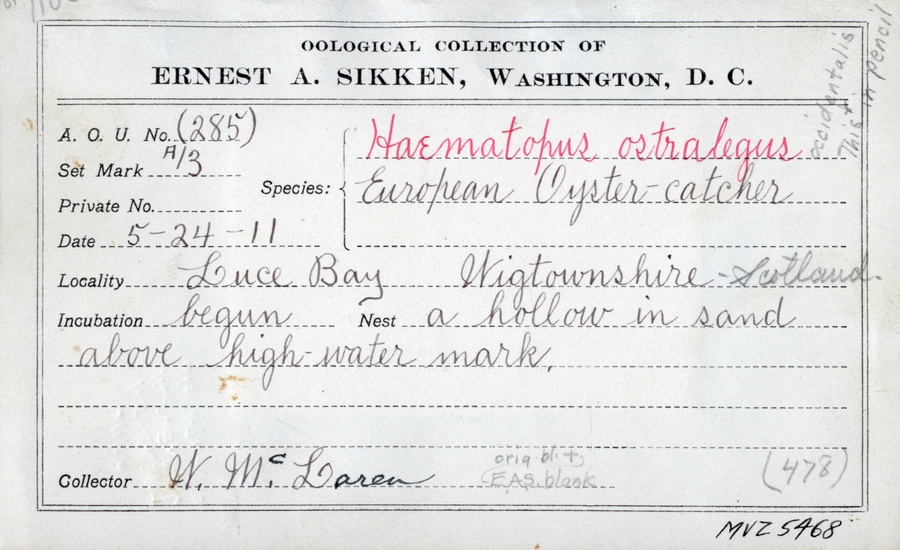 OOLOGICAL COLLECTION OF
ERNEST A. SIKKEN, WASHINGTON, D. C.
A. O. U. No. (285)
Set Mark A/3
Private No.
Date 5-24-11
Species: Haematopus ostralegus
European Oyster-catcher
occidentalis
This in pencil
Locality Luce Bay Wigtownshire - Scotland.
Incubation begun Nest a hollow in sand
above high-water mark.
Collector W. McLaren
E.A.S. blank
(478)
MVZ 5468